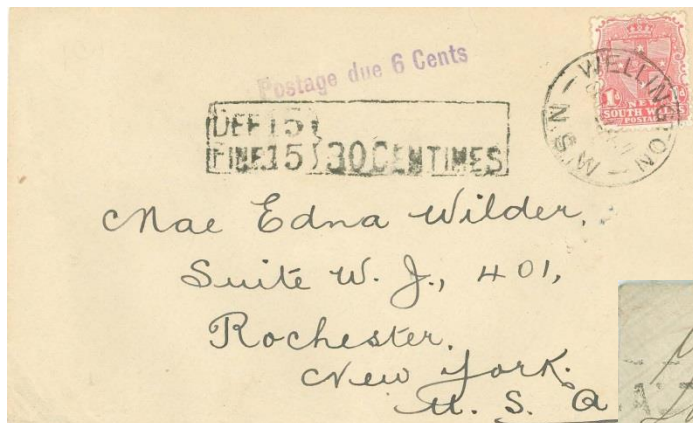 Postage due 6 Cents
DEF 15
FINE 15 } 30 CENTIMES
WELLINGTON
N.S.W
1d
NEW
SOUTH WALES
POSTAGE
Mae Edna Wilder,
Suite W. J., 401,
Rochester.
New York.
U. S. A